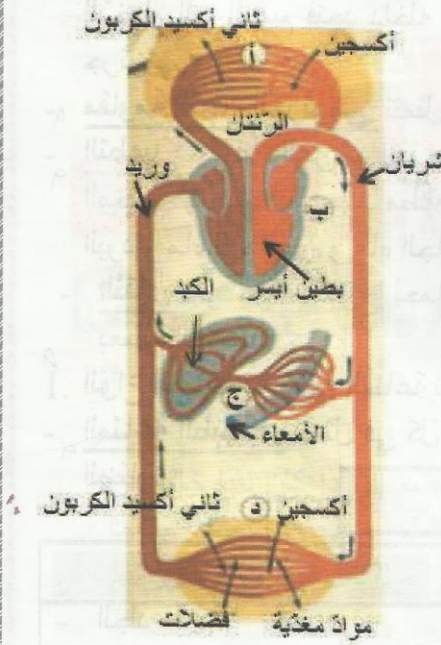 ثاني أكسيد الكربون
أكسجين
أ
الرئتان
وريد
شريان
ب
بطين أيسر
الكبد
ج
الأمعاء
ثاني أكسيد الكربون
د
أكسجين
فضلات
مواد مغذية